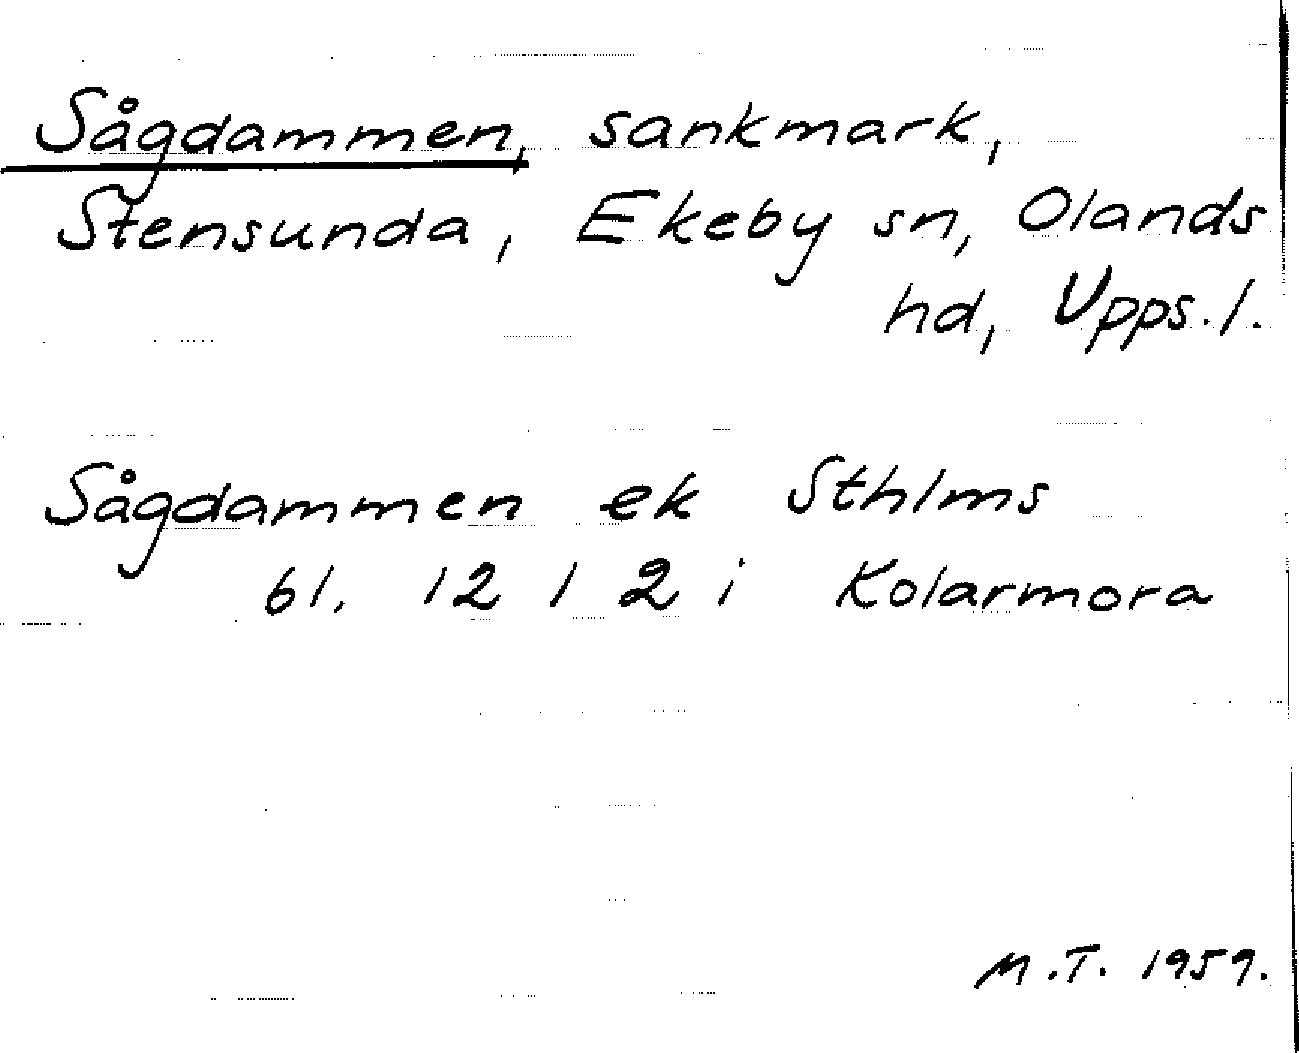 Sågdammen, sankmark,
Stensunda, Ekeby sn, Olands
hd, Upps. l.
Sågdammen ek Sthlms
bl. 12 1 2 i Kolarmora
M.T. 1959.